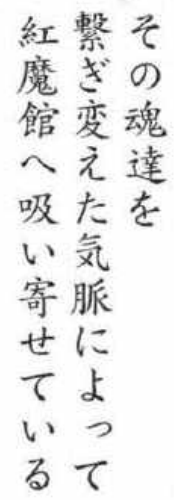 その魂達を
繋ぎ変えた気脈によって
紅魔館へ吸い寄せている